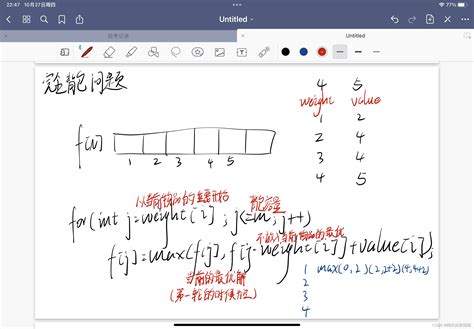 22:47 10月27日周四
77%
Untitled
Untitled
完全背包问题
4 5
weight value
1 2
2 4
3 4
4 5
f[i]
1 2 3 4 5
以当前物品的重量开始
背包容量
for(int j=weight[i]; j<=m; j++)
不放入当前物品的最优
f[j]=max(f[j], f[j-weight[i]]+value[i]);
当前的最优解
(第一轮的时候为0)
1 max(0,2)(2,2+2)(4,4+2)
2
3
4